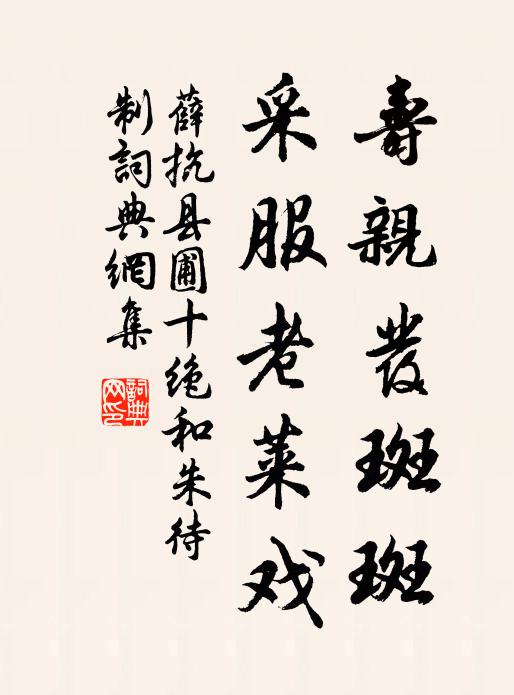 壽親髮斑斑
采服老萊戏
薛抗县圃十绝和朱待
制詞典網集
詞典网印